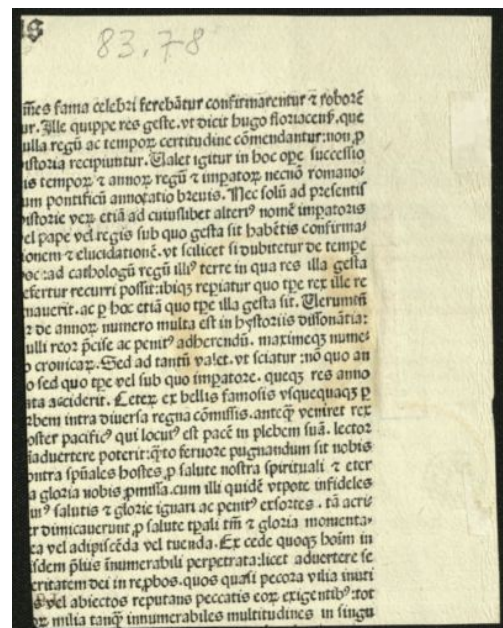 83.78
m̄es fama celebri ferebātur confirmarentur ⁊ roborē
ur. Ille quippe res geste. vt dicit hugo floriacens̄. que
ulla regū ac tempoꝝ certitudine cōmendantur: non ꝓ
istoria recipiuntur. Ualet igitur in hoc oꝑe successio
is tempoꝝ ⁊ annoꝝ regū ⁊ imꝑatoꝝ necnō romano⸗
um pontificū annotatio brevis. Nec solū ad presentis
istorie veꝝ etiā ad cuiuslibet alteriꝰ nomē imꝑatoris
el pape vel regis sub quo gesta sit habētis confirma⸗
ionem ⁊ elucidationē. vt scilicet si dubitetur de tempe
oc: ad cathologū regū illiꝰ terre in qua res illa gesta
efertur recurri possit: ibiqꝫ reꝑiatur quo tꝑe rex ille re
nauerit. ac ꝑ hoc etiā quo tꝑe illa gesta sit. Uerumtn̄
r de annoꝝ numero multa est in hystoriis dissonātia:
ulli reor p̄cise ac penitꝰ adherendū. maximeqꝫ nume⸗
o cronicaꝝ. Sed ad tantū valet. vt sciatur: nō quo an
o sed quo tꝑe vel sub quo imꝑatore. queqꝫ res anno
ata acciderit. Ceteꝝ ex bellis famosis vsquequaqꝫ ꝑ
rbem intra diversa regna cōmissis. anteqꝫ veniret rex
oster pacificꝰ qui locutꝰ est pacē in plebem suā. lector
īaduertere poterit: q̄to feruore pugnandum sit nobis
ontra spūales hostes ꝓ salute nostra spirituali ⁊ eter
a gloria nobis ꝓmissa. cum illi quidē vtpote infideles
uiꝰ salutis ⁊ glorie ignari ac penitꝰ exsortes. tā acri⸗
er dimicauerunt ꝓ salute tꝑali tm̄ ⁊ gloria momenta⸗
ea vel adipiscēda vel tuenda. Ex cede quoqꝫ hoīm in
isdem p̄lius īnumerabili perpetrata: licet aduertere se
eritatem dei in reꝓbos. quos quasi pecora vilia inuti
s vel abiectos reputans peccatis eoꝝ exigentibꝰ: tot
oꝝ milia tanqꝫ innumerabiles multitudines in singu